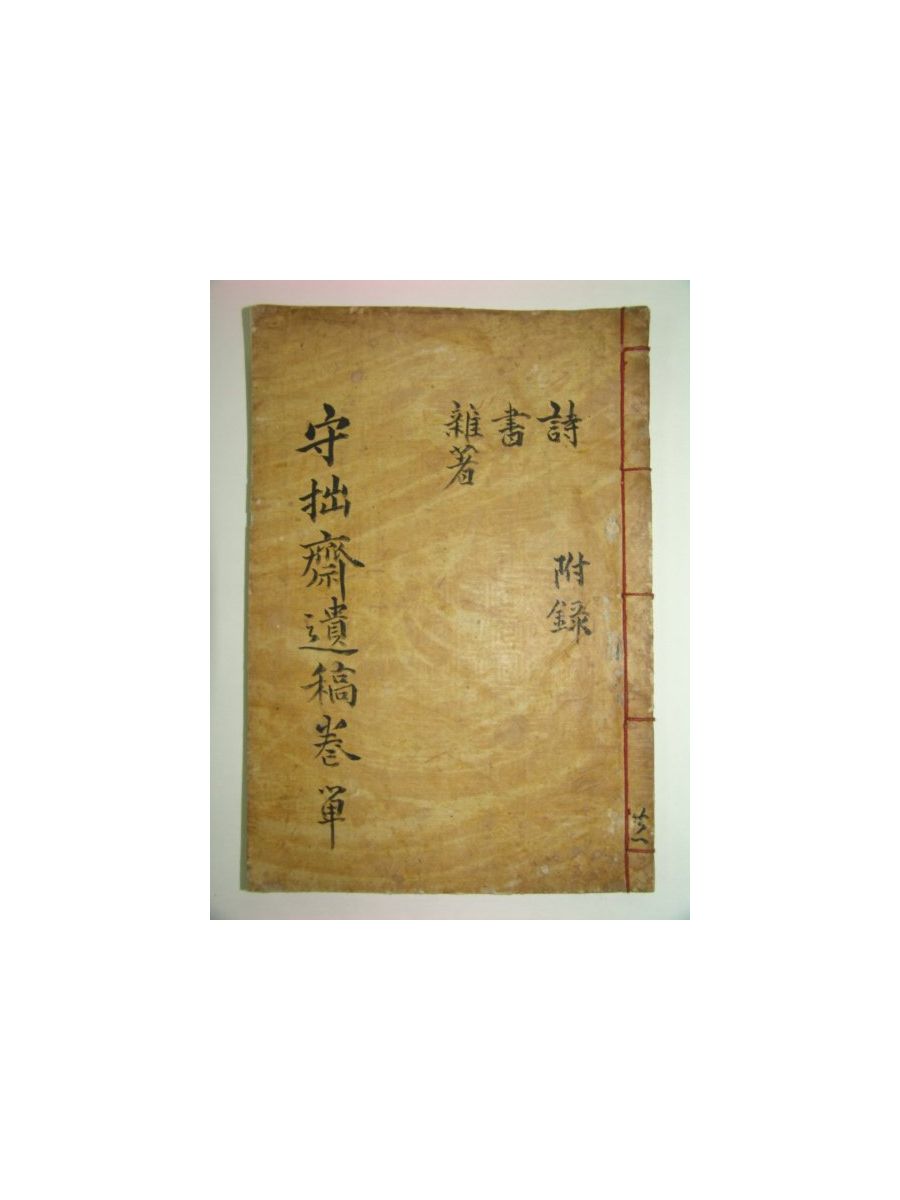 詩
附録
書
雜著
守拙齋遺稿卷單
共一